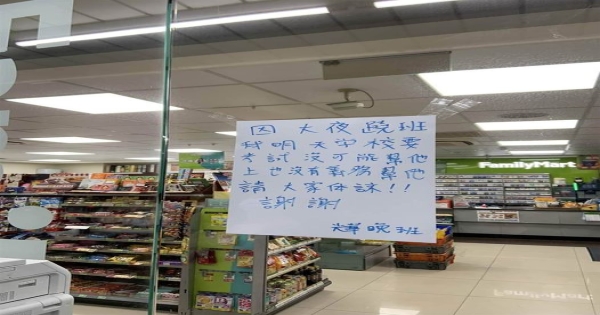 因 大夜蹺班
我明天學校要
考試 沒可能幫他
上也沒有義務幫他
請 大家体諒!!
謝謝
晚班
FamilyMart